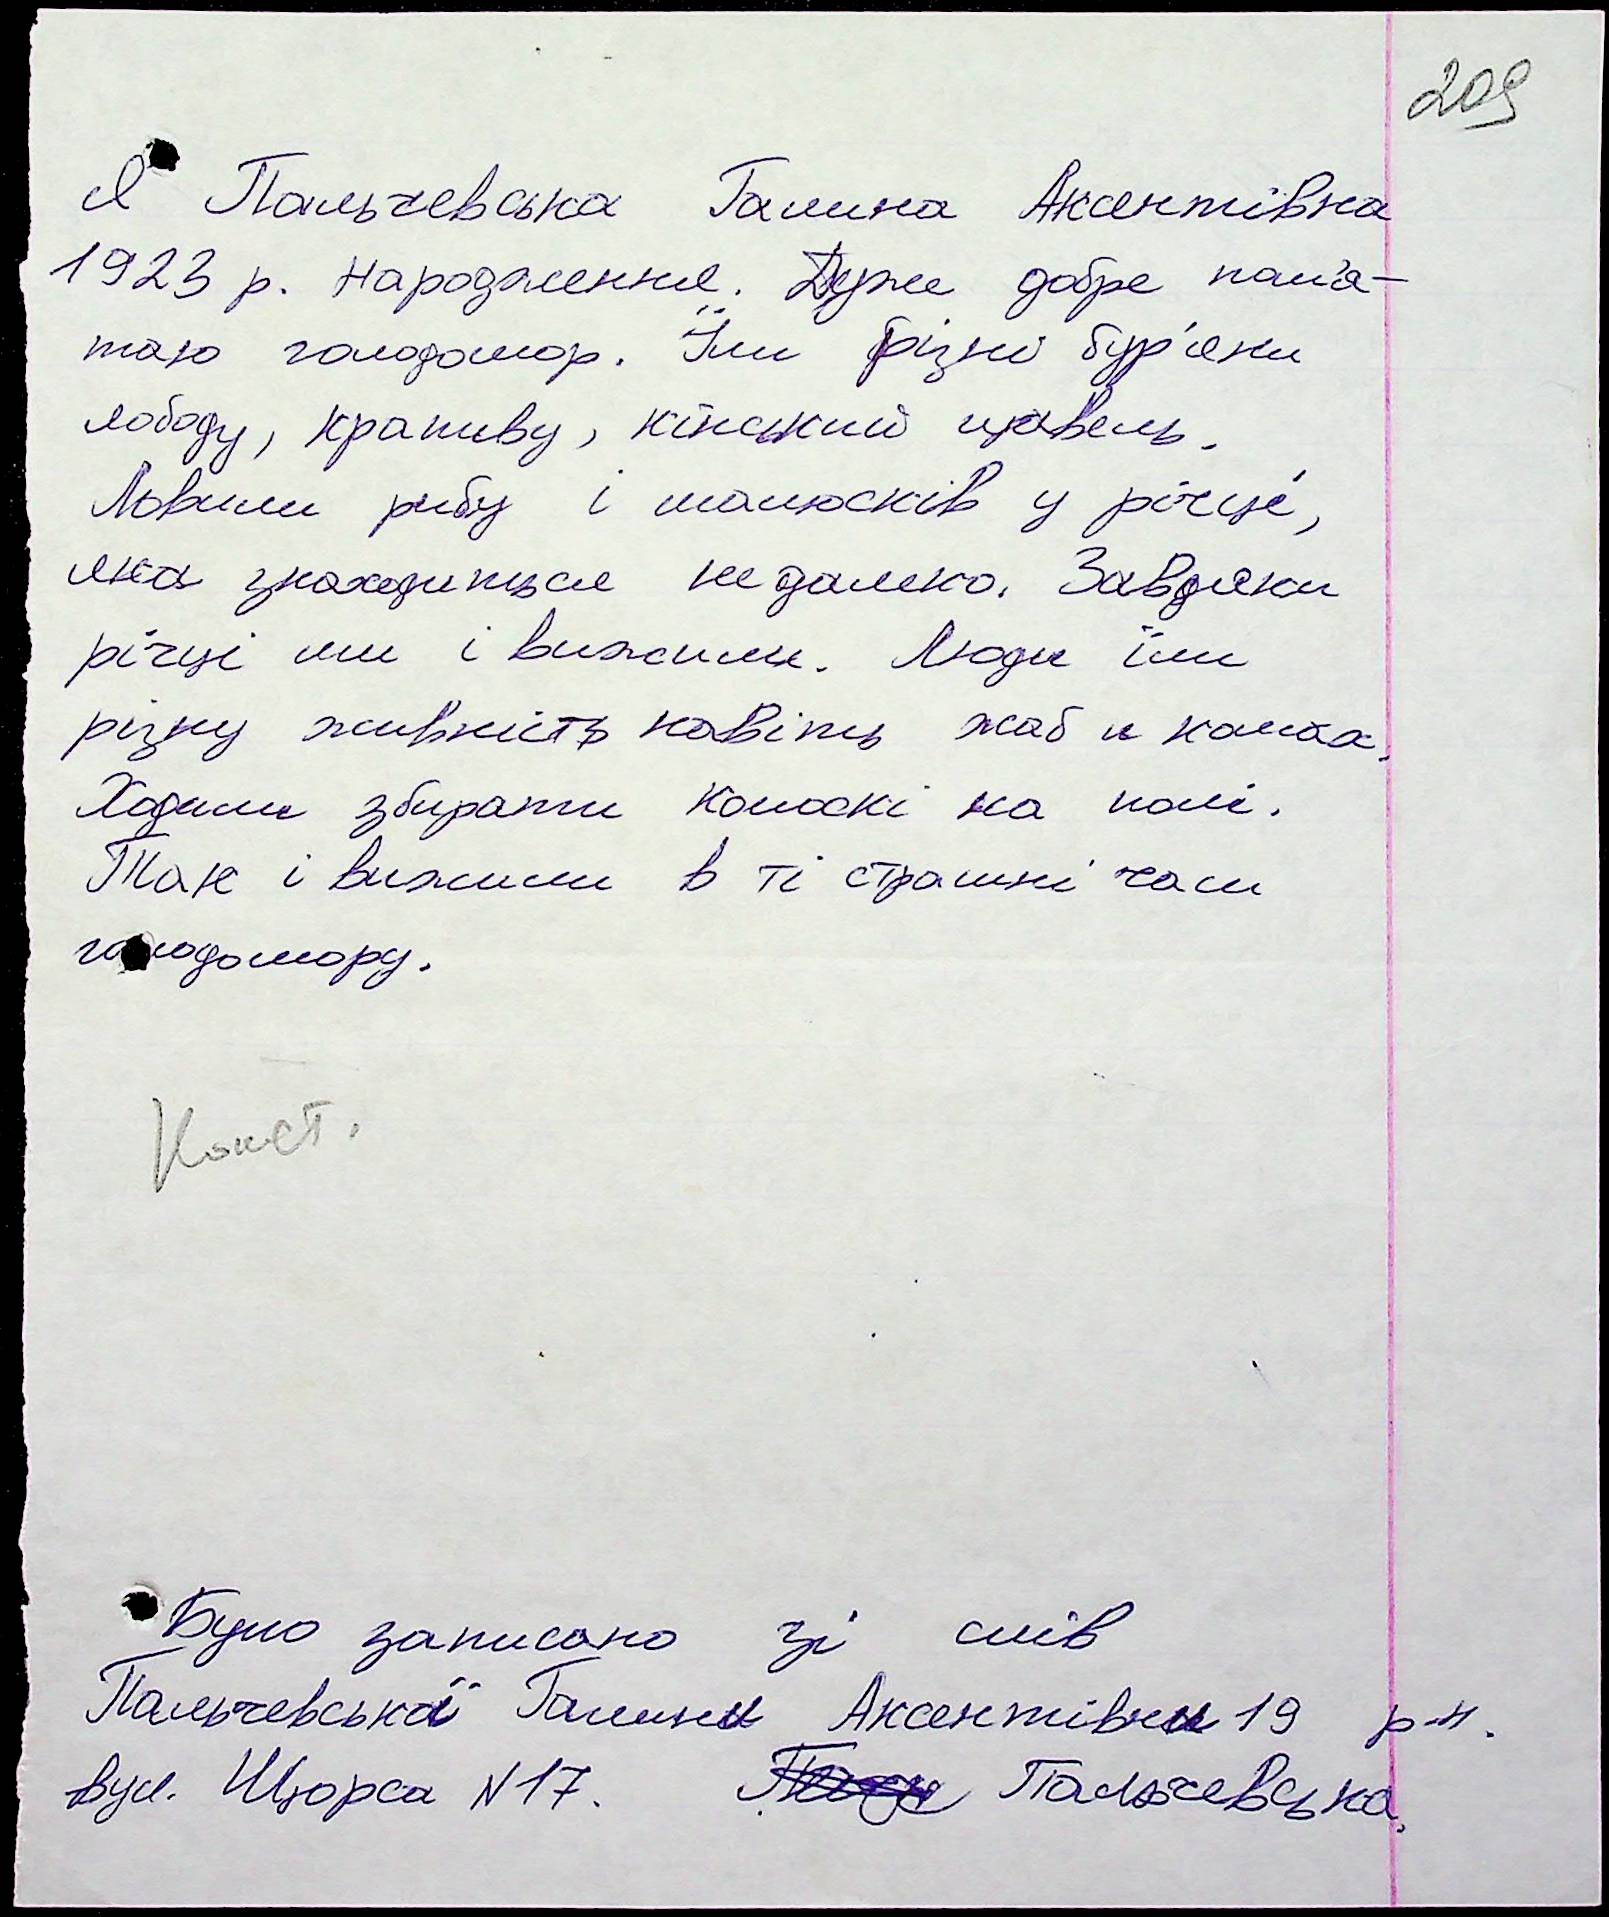 209
Я Пальчевська Галина Аксентівна
1923 р. народження. Дуже добре пам'я-
таю голодомор. Їли різні бур'яни
лободу, крапиву, кінський щавель.
Ловили рибу і малюсків у річці,
яка знаходиться недалеко. Завдяки
річці ми і вижили. Люди їли
різну живність навіть жаб и комах.
Ходили збирати колоскі на полі.
Так і вижили в ті страшні часи
голодомору.
Конст.
Було записано зі слів
Пальчевської Галини Аксентівни 19 р.н.
вул. Щорса N 17. Пальчевська.